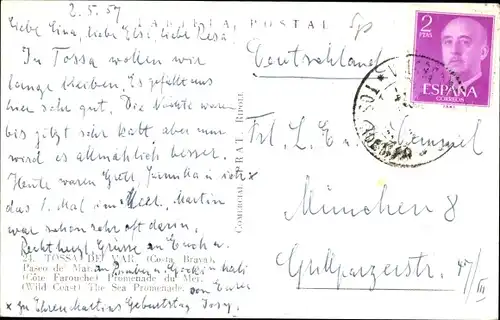 2.5.57
TARJETA POSTAL
Liebe Gina, liebe Elsi, liebe Resi,
In Tossa wollen wir
lange bleiben. Es gefällt uns
hier sehr gut. Die Nächte waren
bis jetzt sehr kalt aber nun
wird es allmählich besser.
Heute waren Gretl, u ich x
das 1. Mal im Meer. Martin
war schon sehr oft darin.
Rechtherzl. Grüsse an Euch u.
von Eurer
x zu Ehren Martins Geburtstag
24. TOSSA DE MAR. (Costa Brava)
Paseo de Mar.
(Côte Farouche) Promenade du Mer.
(Wild Coast) The Sea Promenade.
COMERCIAL PRAT - RIPOLL
Deutschland
Frl. L. E.
München 8
Grillparzerstr. 47/III
2
PTAS
ESPAÑA
CORREOS